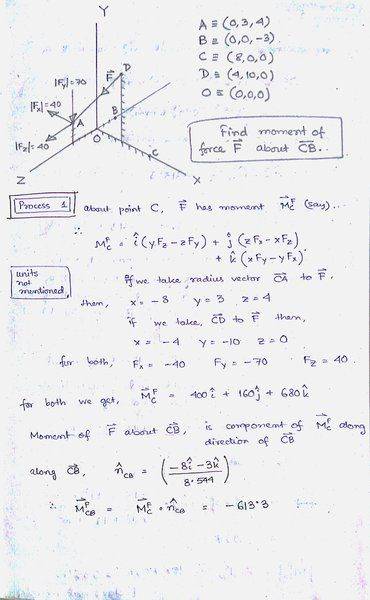 Y
|Fy|=70
F⃗
D
|Fx|=40
A
B
|Fz|=40
O
C
Z
X
A ≡ (0,3,4)
B ≡ (0,0,-3)
C ≡ (8,0,0)
D ≡ (4,10,0)
O ≡ (0,0,0)
Find moment of
force F⃗ about C⃗B⃗..
Process 1
about point C, F⃗ has moment M⃗_C^F (say)...
∴ M⃗_C^F = î (yFz - zFy) + ĵ (zFx - xFz)
+ k̂ (xFy - yFx)
units
not
mentioned
If we take radius vector C⃗A⃗ to F⃗,
then, x = -8 y = 3 z = 4
if we take, C⃗D⃗ to F⃗ then,
x = -4 y = -10 z = 0
for both, Fx = -40 Fy = -70 Fz = 40.
for both we get, M⃗_C^F = 400î + 160ĵ + 680k̂
Moment of F⃗ about C⃗B⃗, is component of M⃗_C^F along
direction of C⃗B⃗
along C⃗B⃗, n̂_CB = (-8î - 3k̂ / 8.544)
∴ M⃗_CB^F = M⃗_C^F • n̂_CB = -613.3